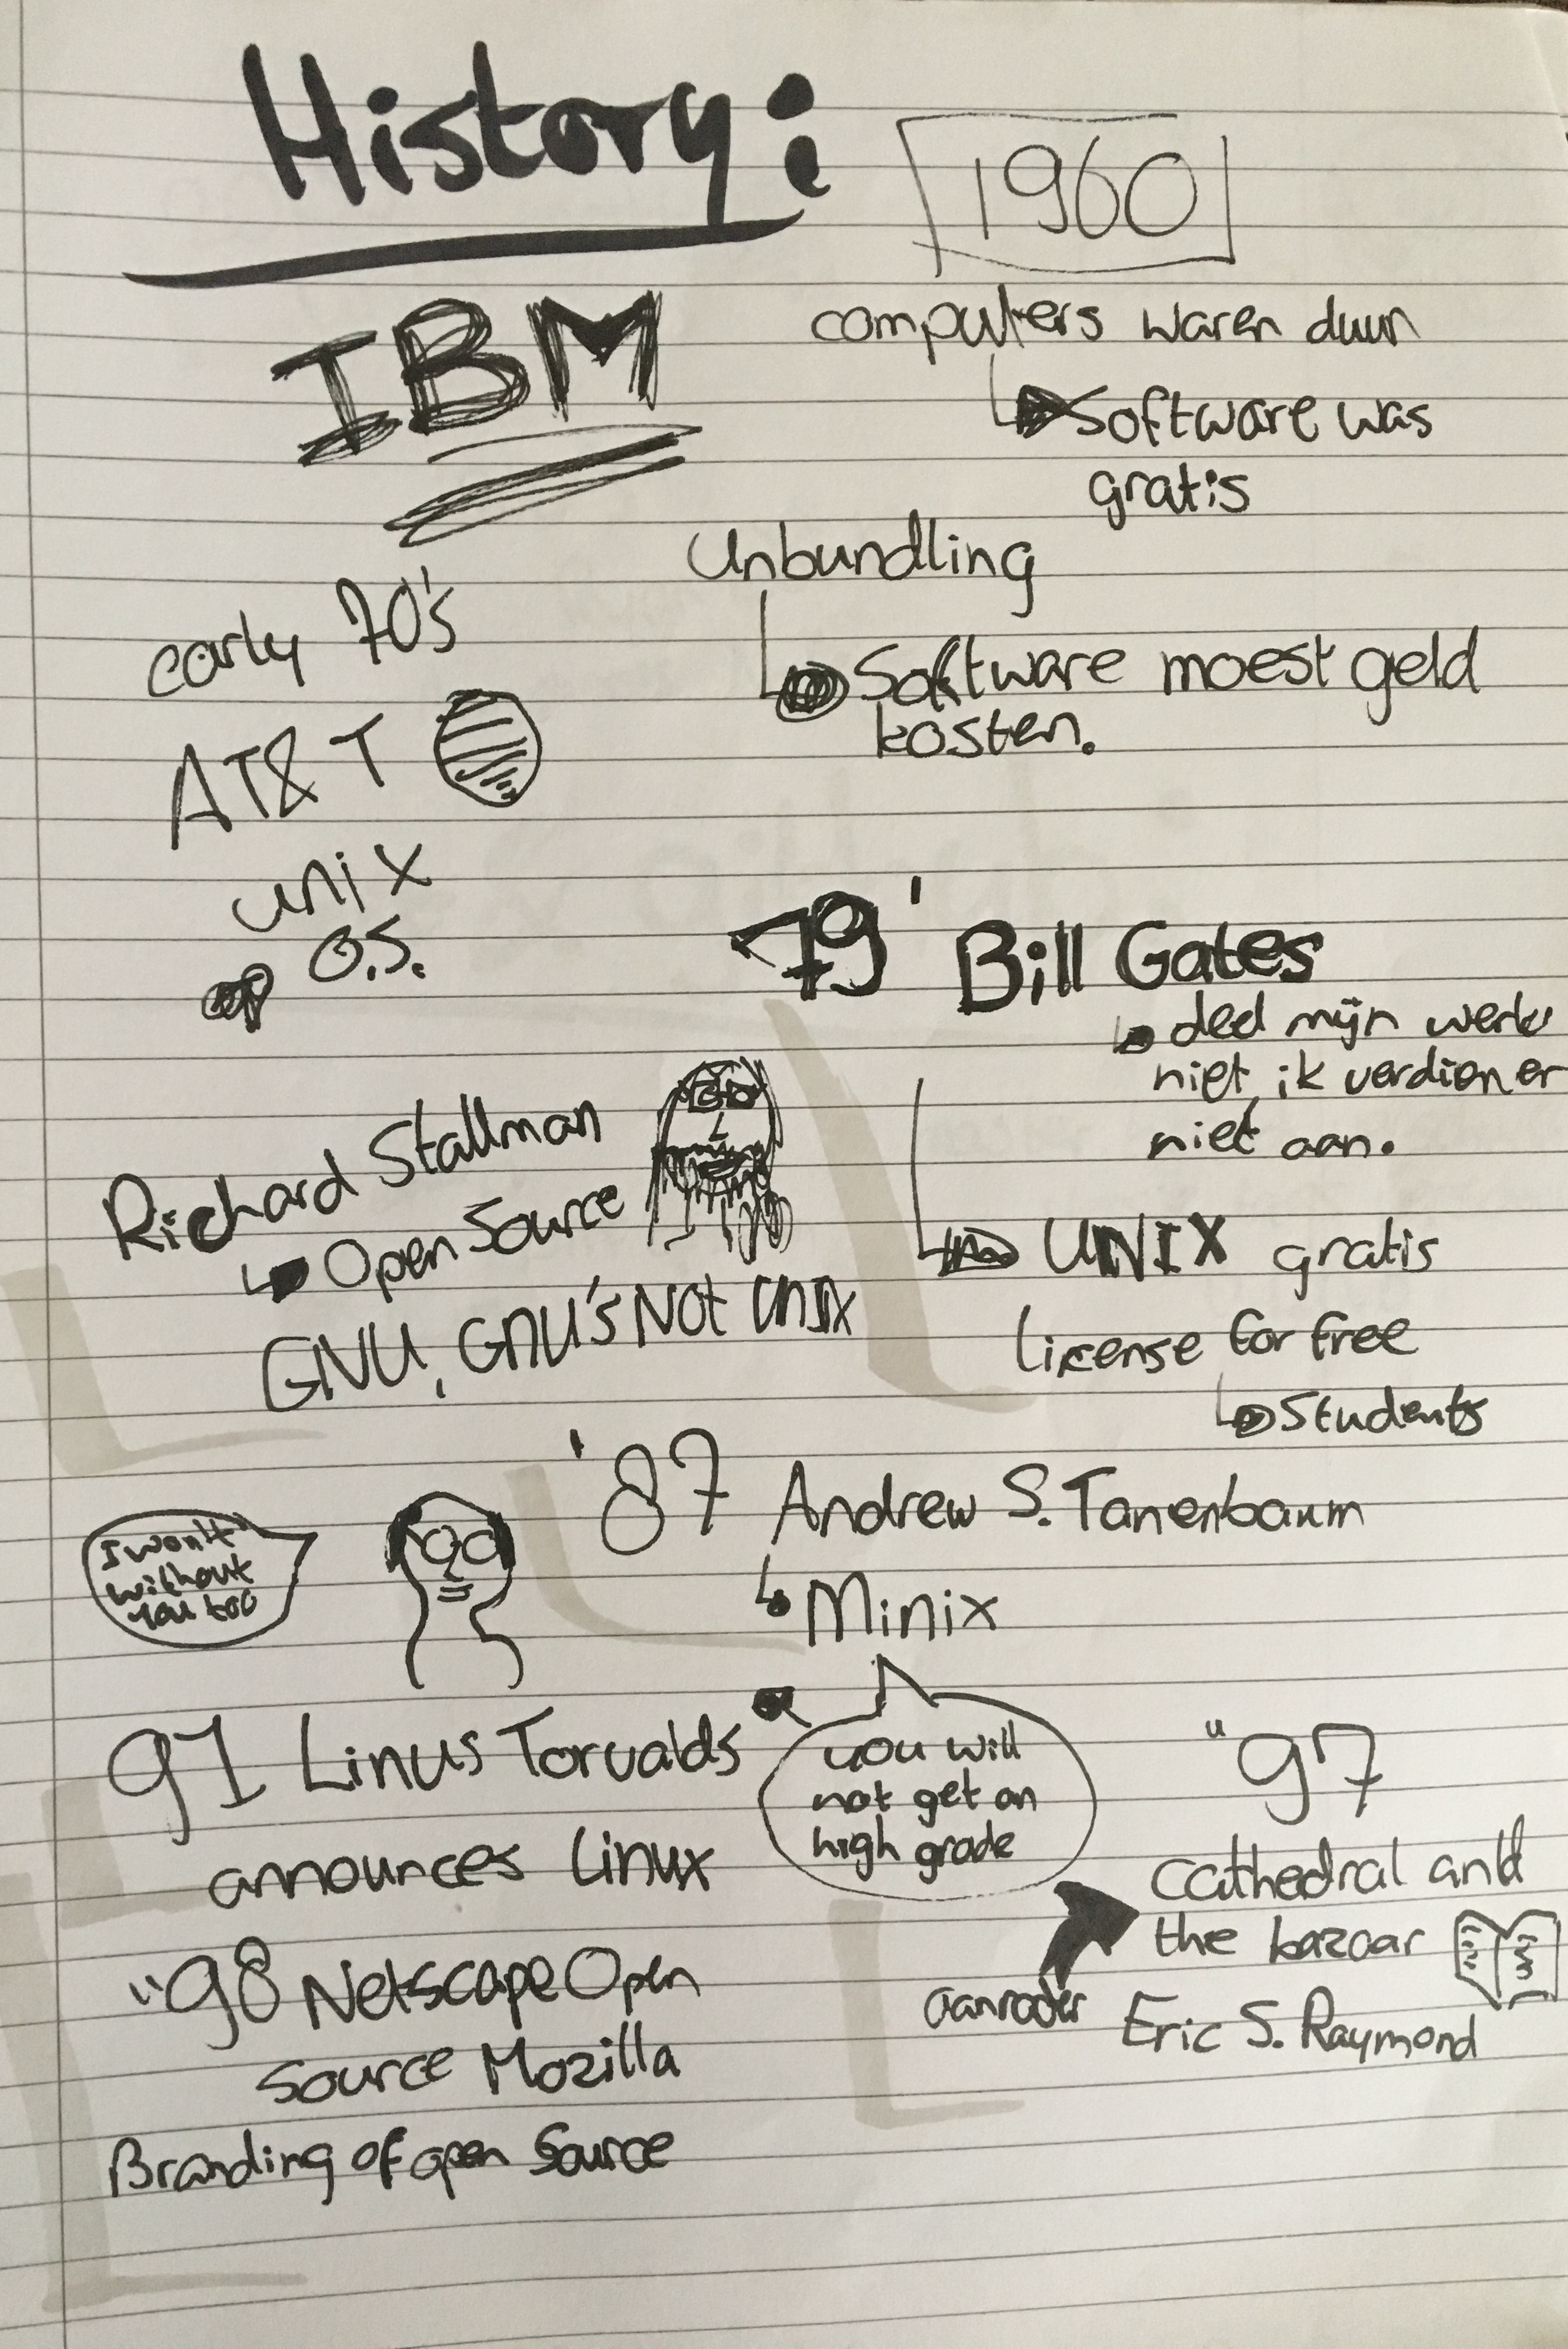 History:
1960
IBM
computers waren duur
Software was
gratis
Unbundling
Software moest geld
kosten.
early 70's
AT&T
unix
O.S.
79' Bill Gates
deel mijn werk
niet, ik verdien er
niet aan.
UNIX gratis
license for free
Students
Richard Stallman
Open Source
GNU, GNU's Not Unix
'87 Andrew S. Tanenbaum
Minix
I won't
without
you too
you will
not get an
high grade
91 Linus Torvalds
announces Linux
"97
Cathedral and
the bazaar
aanrader
Eric S. Raymond
"98 Netscape Open
Source Mozilla
Branding of open Source